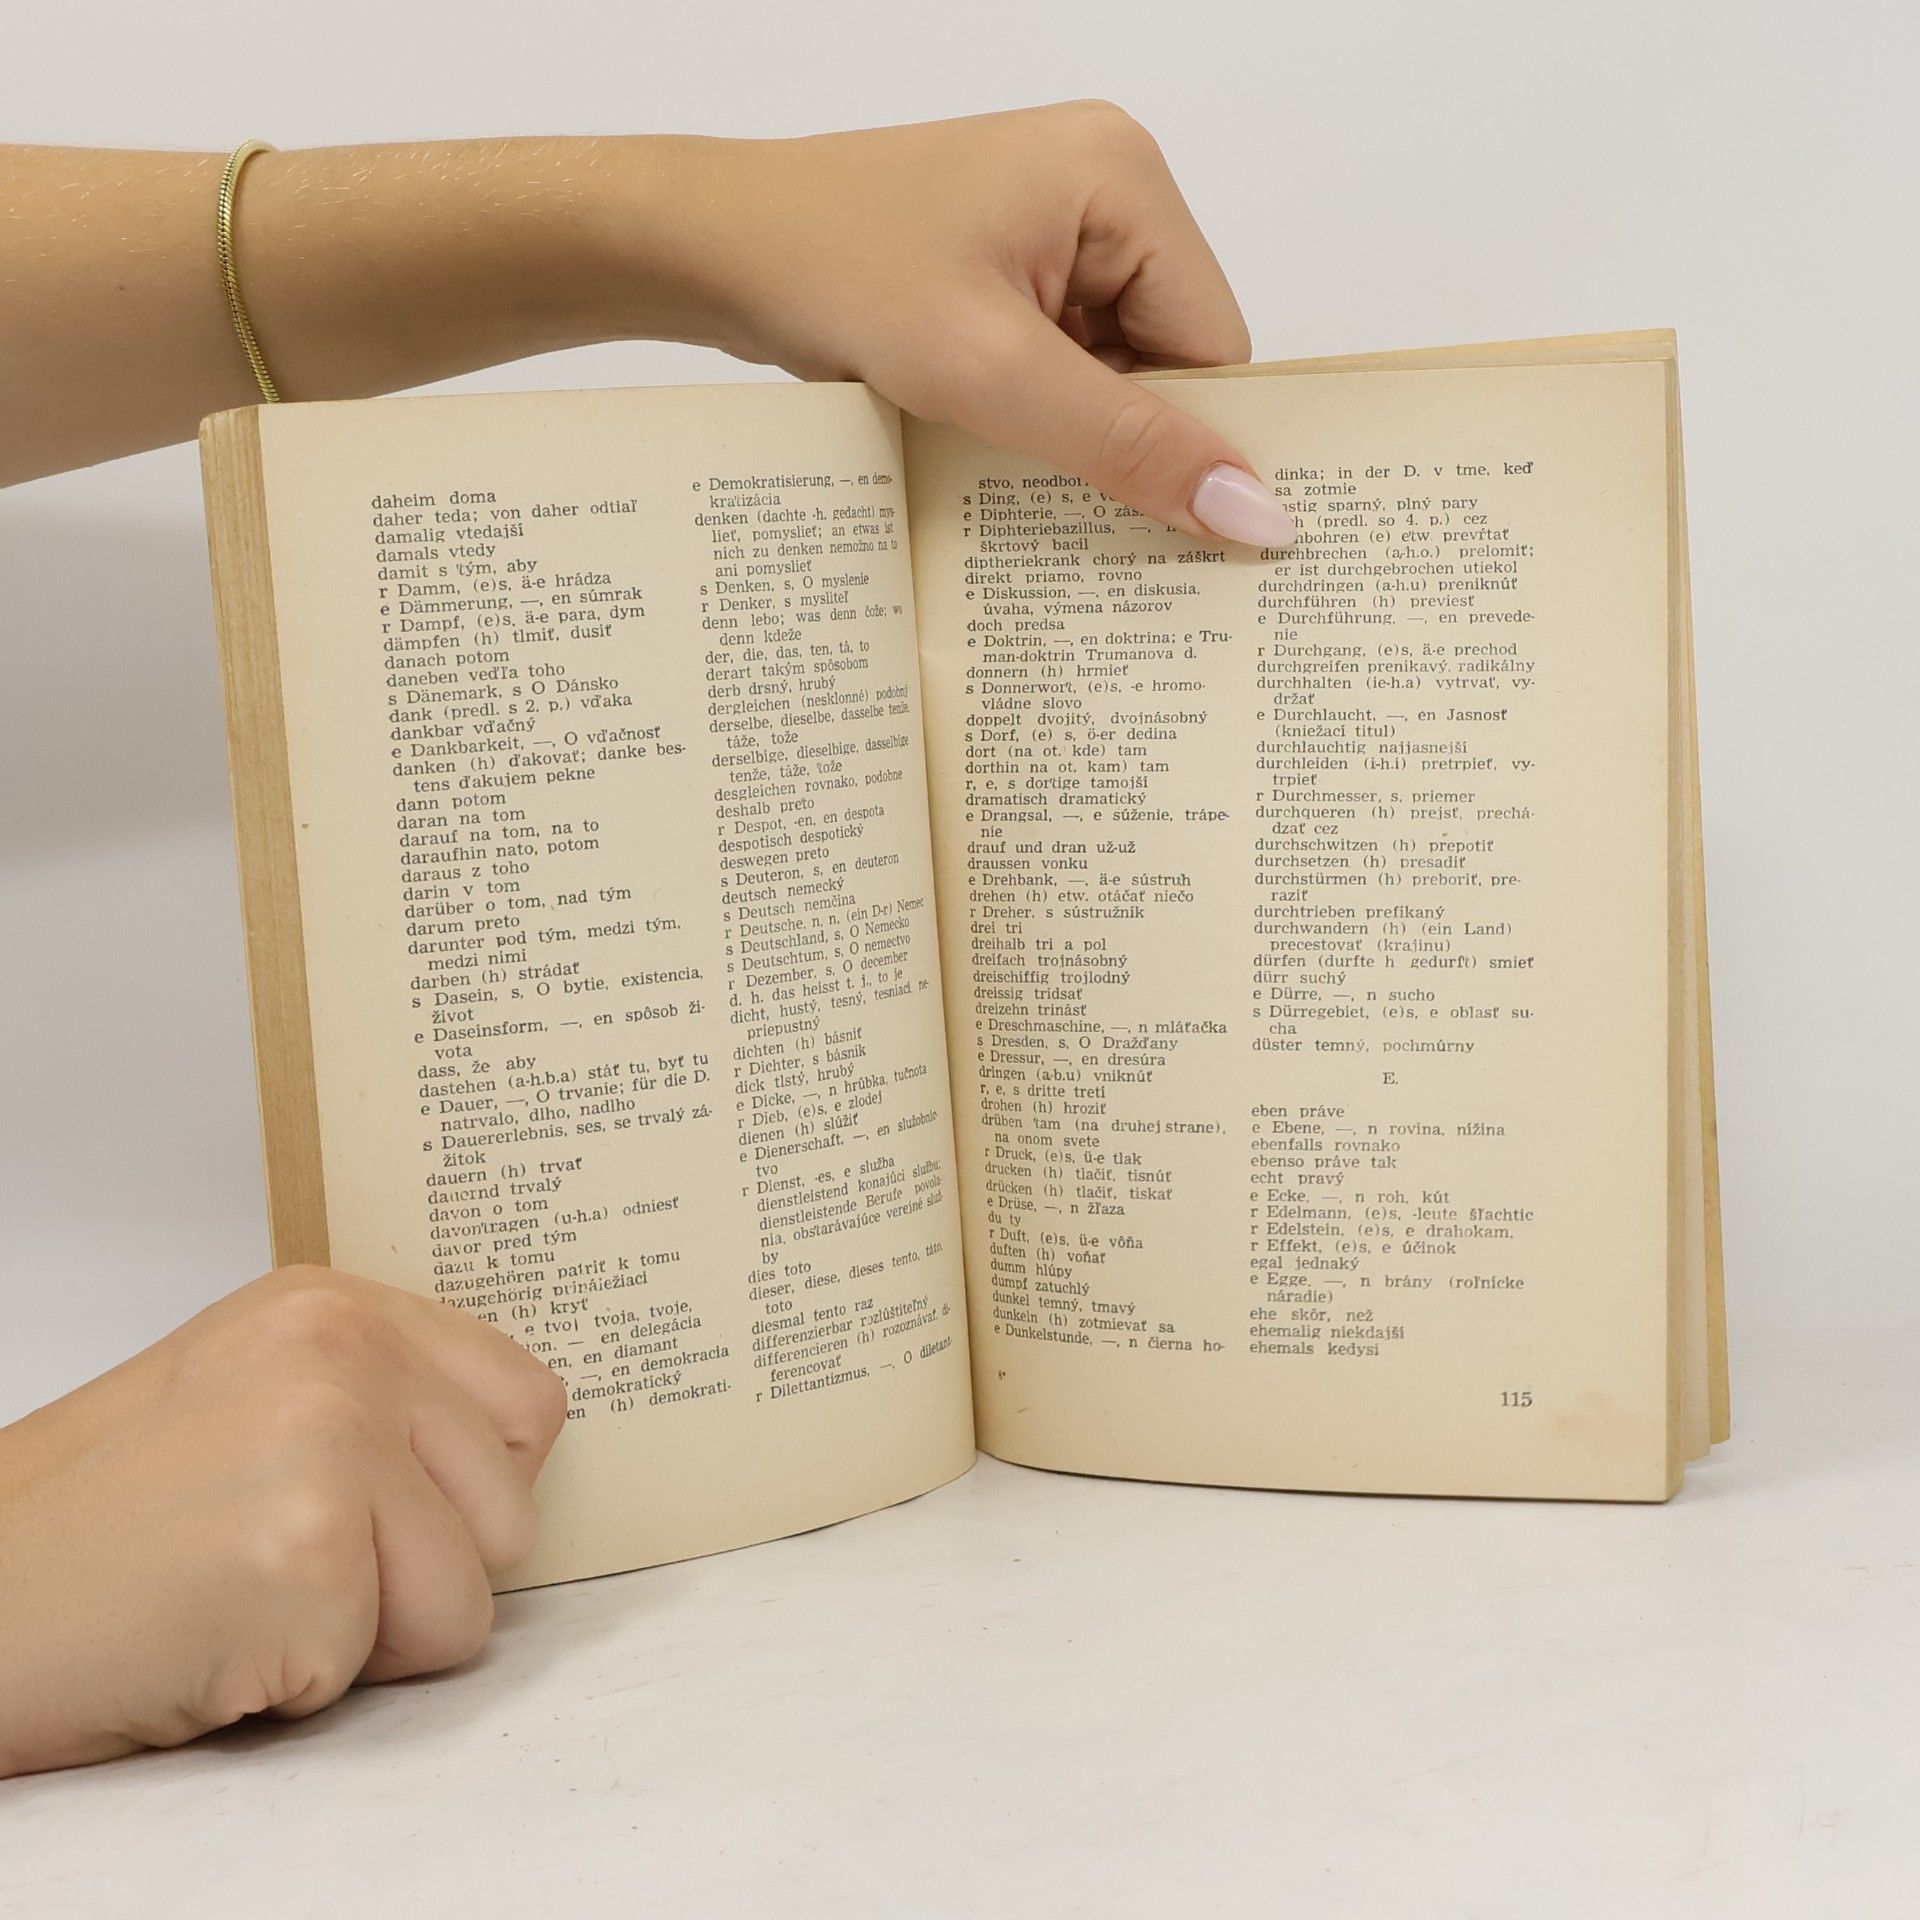 daheim doma
daher teda; von daher odtiaľ
damalig vtedajší
damals vtedy
damit s tým, aby
r Damm, (e)s, ä-e hrádza
e Dämmerung, —, en súmrak
r Dampf, (e)s, ä-e para, dym
dämpfen (h) tlmiť, dusiť
danach potom
daneben vedľa toho
s Dänemark, s O Dánsko
dank (predl. s 2. p.) vďaka
dankbar vďačný
e Dankbarkeit, —, O vďačnosť
danken (h) ďakovať; danke bes-
tens ďakujem pekne
dann potom
daran na tom
darauf na tom, na to
daraufhin nato, potom
daraus z toho
darin v tom
darüber o tom, nad tým
darum preto
darunter pod tým, medzi tým,
medzi nimi
darben (h) strádať
s Dasein, s, O bytie, existencia,
život
e Daseinsform, —, en spôsob ži-
vota
dass, že aby
dastehen (a-h.b.a) stáť tu, byť tu
e Dauer, —, O trvanie; für die D.
natrvalo, dlho, nadlho
s Dauererlebnis, ses, se trvalý zá-
žitok
dauern (h) trvať
dauernd trvalý
davon o tom
davontragen (u-h.a) odniesť
davor pred tým
dazu k tomu
dazugehören patriť k tomu
dazugehörig prináležiaci
en (h) kryť
, e tvoj tvoja, tvoje,
ion, — en delegácia
en, en diamant
, —, en demokracia
demokratický
en (h) demokrati-
e Demokratisierung, —, en demo-
kratizácia
denken (dachte -h. gedacht) mys-
lieť, pomyslieť; an etwas ist
nich zu denken nemožno na to
ani pomyslieť
s Denken, s, O myslenie
r Denker, s mysliteľ
denn lebo; was denn čože; wo
denn kdeže
der, die, das, ten, tá, to
derart takým spôsobom
derb drsný, hrubý
dergleichen (nesklonné) podobný
derselbe, dieselbe, dasselbe tenže,
táže, tože
derselbige, dieselbige, dasselbige
tenže, táže, tože
desgleichen rovnako, podobne
deshalb preto
r Despot, -en, en despota
despotisch despotický
deswegen preto
s Deuteron, s, en deuteron
deutsch nemecký
s Deutsch nemčina
r Deutsche, n, n, (ein D-r) Nemec
s Deutschland, s, O Nemecko
s Deutschtum, s, O nemectvo
r Dezember, s, O december
d. h. das heisst t. j., to je
dicht, hustý, tesný, tesniaci, ne-
priepustný
dichten (h) básniť
r Dichter, s básnik
dick tlstý, hrubý
e Dicke, —, n hrúbka, tučnota
r Dieb, (e)s, e zlodej
dienen (h) slúžiť
e Dienerschaft, —, en služobníc-
tvo
r Dienst, -es, e služba
dienstleistend konajúci službu;
dienstleistende Berufe povola-
nia, obstarávajúce verejné služ-
by
dies toto
dieser, diese, dieses tento, táto,
toto
diesmal tento raz
differenzierbar rozlúštiteľný
differencieren (h) rozoznávať, di-
ferencovať
r Dilettantizmus, —, O diletant-
stvo,
s Ding, (e) s, e
e Diphterie, —, O
r Diphteriebazillus, —,
škrtový bacil
diptheriekrank chorý na záškrt
direkt priamo, rovno
e Diskussion, —, en diskusia,
úvaha, výmena názorov
doch predsa
e Doktrin, —, en doktrína; e Tru-
man-doktrin Trumanova d.
donnern (h) hrmieť
s Donnerwort, (e)s, -e hromo-
vládne slovo
doppelt dvojitý, dvojnásobný
s Dorf, (e) s, ö-er dedina
dort (na ot. kde) tam
dorthin na ot. kam) tam
r, e, s dortige tamojší
dramatisch dramatický
e Drangsal, —, e súženie, trápe-
nie
drauf und dran už-už
draussen vonku
e Drehbank, —, ä-e sústruh
drehen (h) etw. otáčať niečo
r Dreher, s sústružník
drei tri
dreihalb tri a pol
dreifach trojnásobný
dreischiffig trojlodný
dreissig tridsať
dreizehn trinásť
e Dreschmaschine, —, n mláťačka
s Dresden, s, O Dražďany
e Dressur, —, en dresúra
dringen (a-b.u) vniknúť
r, e, s dritte tretí
drohen (h) hroziť
drüben tam (na druhej strane),
na onom svete
r Druck, (e)s, ü-e tlak
drucken (h) tlačiť, tisnúť
drücken (h) tlačiť, tiskať
e Drüse, —, n žľaza
du ty
r Duft, (e)s, ü-e vôňa
duften (h) voňať
dumm hlúpy
dumpf zatuchlý
dunkel temný, tmavý
dunkeln (h) zotmievať sa
e Dunkelstunde, —, n čierna ho-
8*
dinka; in der D. v tme, keď
sa zotmie
sparný, plný pary
(predl. so 4. p.) cez
(e) etw. prevŕtať
durchbrechen (a-h.o.) prelomiť;
er ist durchgebrochen utiekol
durchdringen (a-h.u) preniknúť
durchführen (h) previesť
e Durchführung, —, en prevede-
nie
r Durchgang, (e)s, ä-e prechod
durchgreifen prenikavý, radikálny
durchhalten (ie-h.a) vytrvať, vy-
držať
e Durchlaucht, —, en Jasnosť
(kniežací titul)
durchlauchtig najjasnejší
durchleiden (i-h.i) pretrpieť, vy-
trpieť
r Durchmesser, s, priemer
durchqueren (h) prejsť, prechá-
dzať cez
durchschwitzen (h) prepotiť
durchsetzen (h) presadiť
durchstürmen (h) preboriť, pre-
raziť
durchtrieben prefíkaný
durchwandern (h) (ein Land)
precestovať (krajinu)
dürfen (durfte h gedurft) smieť
dürr suchý
e Dürre, —, n sucho
s Dürregebiet, (e)s, e oblasť su-
cha
düster temný, pochmúrny
E.
eben práve
e Ebene, —, n rovina, nížina
ebenfalls rovnako
ebenso práve tak
echt pravý
e Ecke, —, n roh, kút
r Edelmann, (e)s, -leute šľachtic
r Edelstein, (e)s, e drahokam,
r Effekt, (e)s, e účinok
egal jednaký
e Egge, —, n brány (roľnícke
náradie)
ehe skôr, než
ehemalig niekdajší
ehemals kedysi
115